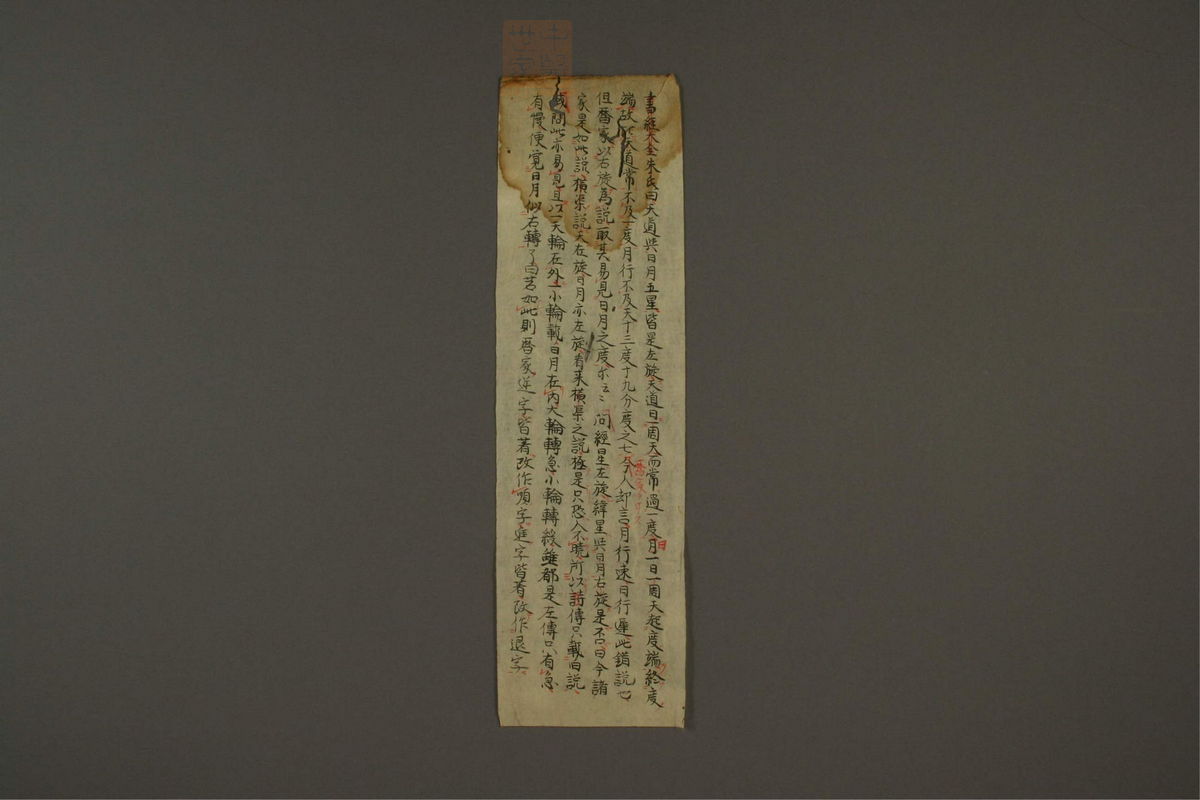 書經大全朱氏曰天道与日月五星皆是左旋天道日一周天而常過一度月一日一周天起度端終度
端故比天道常不及一度月行不及天十三度十九分度之七今人却言月行速日行遲此錯説也
但暦家以右旋為説取其易見日月之度尓云〻問經星左旋緯星与日月右旋是否曰今諸
家是如此説橫渠説天左旋日月亦左旋看来橫渠之説極是只恐人不曉所以詩傳只載旧説
或問此亦易見且以一大輪在外一小輪載日月在内大輪轉急小輪轉緩雖都是左傳只有急
有慢便覚日月似右轉了曰若如此則暦家逆字皆著改作順字進字皆著改作退字
日